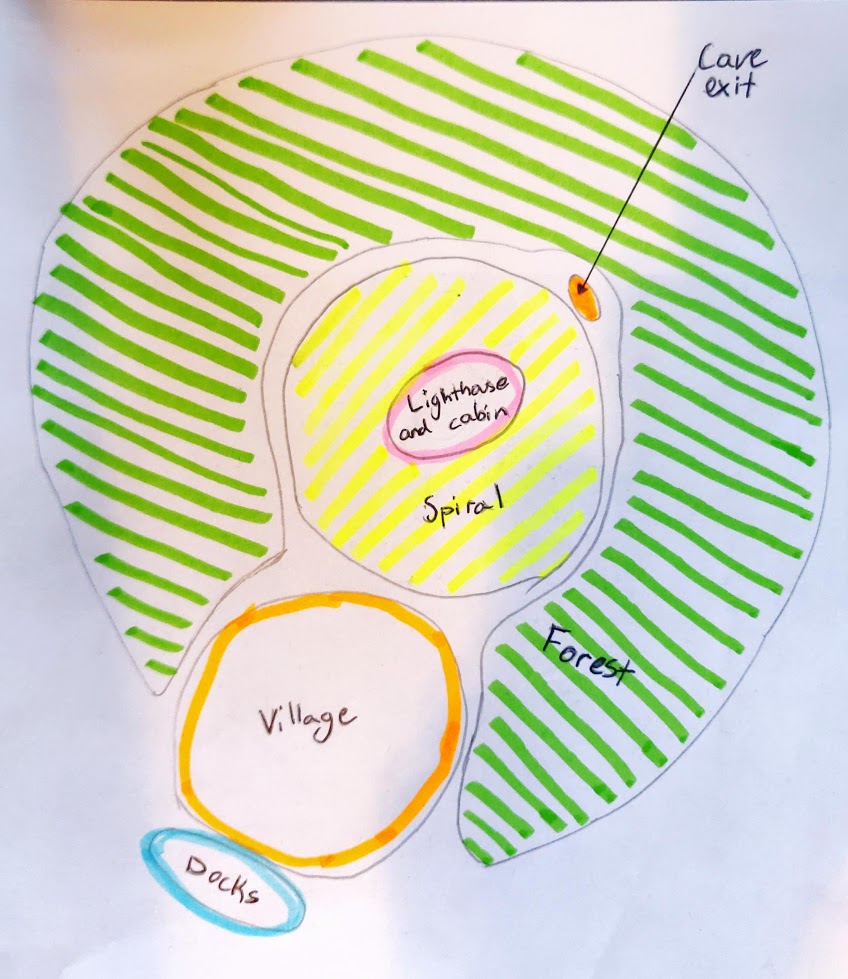 Cave
exit
Lighthouse
and cabin
Spiral
Forest
Village
Docks